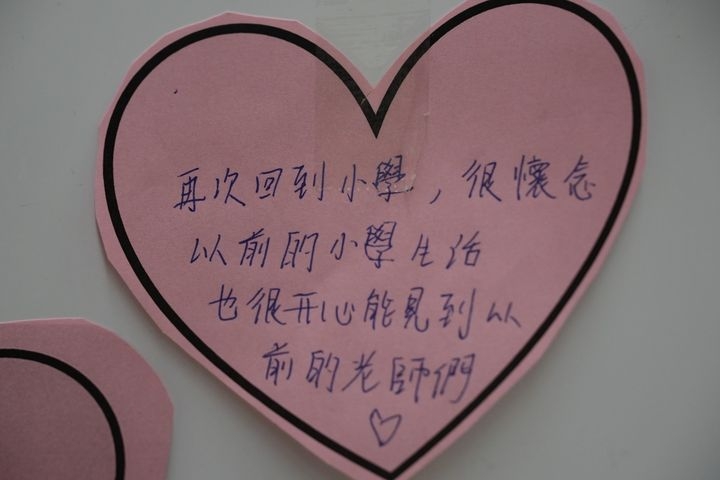 再次回到小學，很懷念
以前的小學生活
也很开心能見到以
前的老師們